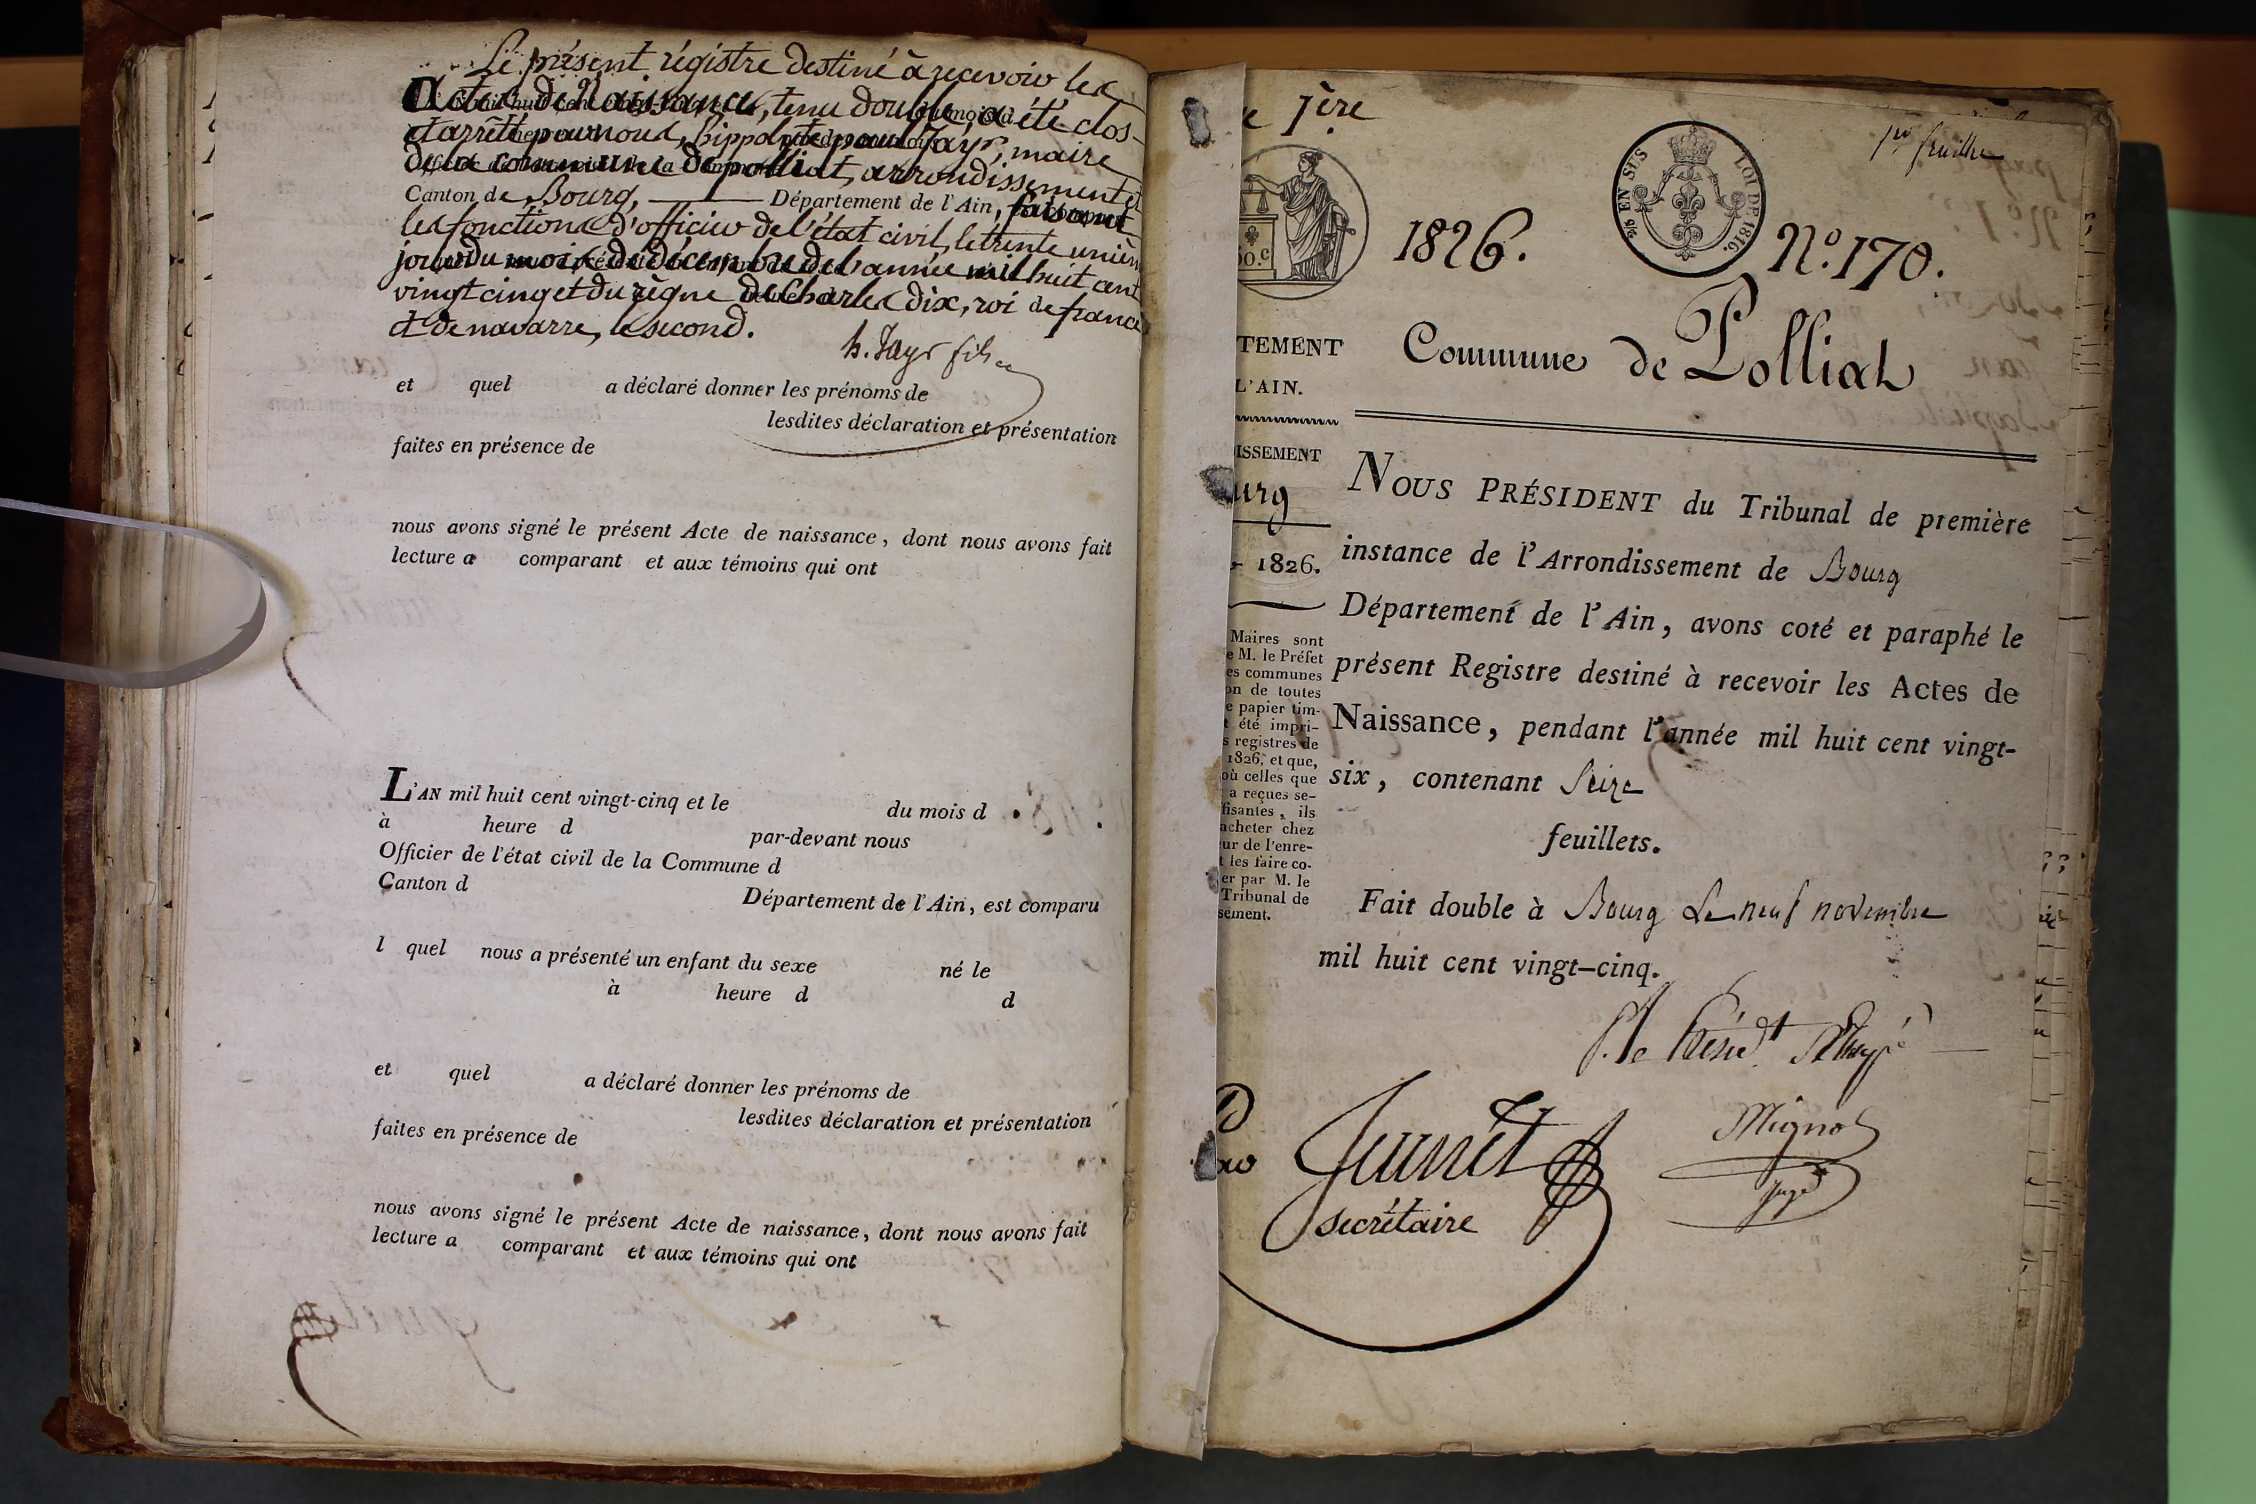 Le présent régistre destiné à recevoir les
Actes de Naissance, tenu double, a été clos
et arrêté par nous, hippolite paul Jayr, maire
de la commune de polliat, arrondissement et
Canton de Bourg, Département de l'Ain, faisant
les fonctions d'officier de l'état civil, le trente unièm
jour du mois de décembre de l'année mil huit cent
vingt cinq et du règne de Charles dix, roi de france
et de navarre, le second.
h. Jayr fils
et quel a déclaré donner les prénoms de
lesdites déclaration et présentation
faites en présence de
nous avons signé le présent Acte de naissance, dont nous avons fait
lecture a comparant et aux témoins qui ont
L'AN mil huit cent vingt-cinq et le du mois d
à heure d par-devant nous
Officier de l'état civil de la Commune d
Canton d Département de l'Ain, est comparu
l quel nous a présenté un enfant du sexe né le
à heure d d
et quel a déclaré donner les prénoms de
lesdites déclaration et présentation
faites en présence de
nous avons signé le présent Acte de naissance, dont nous avons fait
lecture a comparant et aux témoins qui ont
e 1ère
1er feuillet
EN SUS LOI DE 1816.
50.c
1826.
N.º 170.
TEMENT
L'AIN.
Commune de Polliat
ISSEMENT
urg
1826.
Maires sont
e M. le Préfet
es communes
on de toutes
e papier tim-
t été impri-
s registres de
1826, et que,
où celles que
a reçues se-
fisantes, ils
acheter chez
ur de l'enre-
t les faire co-
er par M. le
Tribunal de
sement.
NOUS PRÉSIDENT du Tribunal de première
instance de l'Arrondissement de Bourg
Département de l'Ain, avons coté et paraphé le
présent Registre destiné à recevoir les Actes de
Naissance, pendant l'année mil huit cent vingt-
six, contenant Seize
feuillets.
Fait double à Bourg Le neuf novembre
mil huit cent vingt-cinq.
P. le Présidt
Mignot
juge
Junet
secrétaire